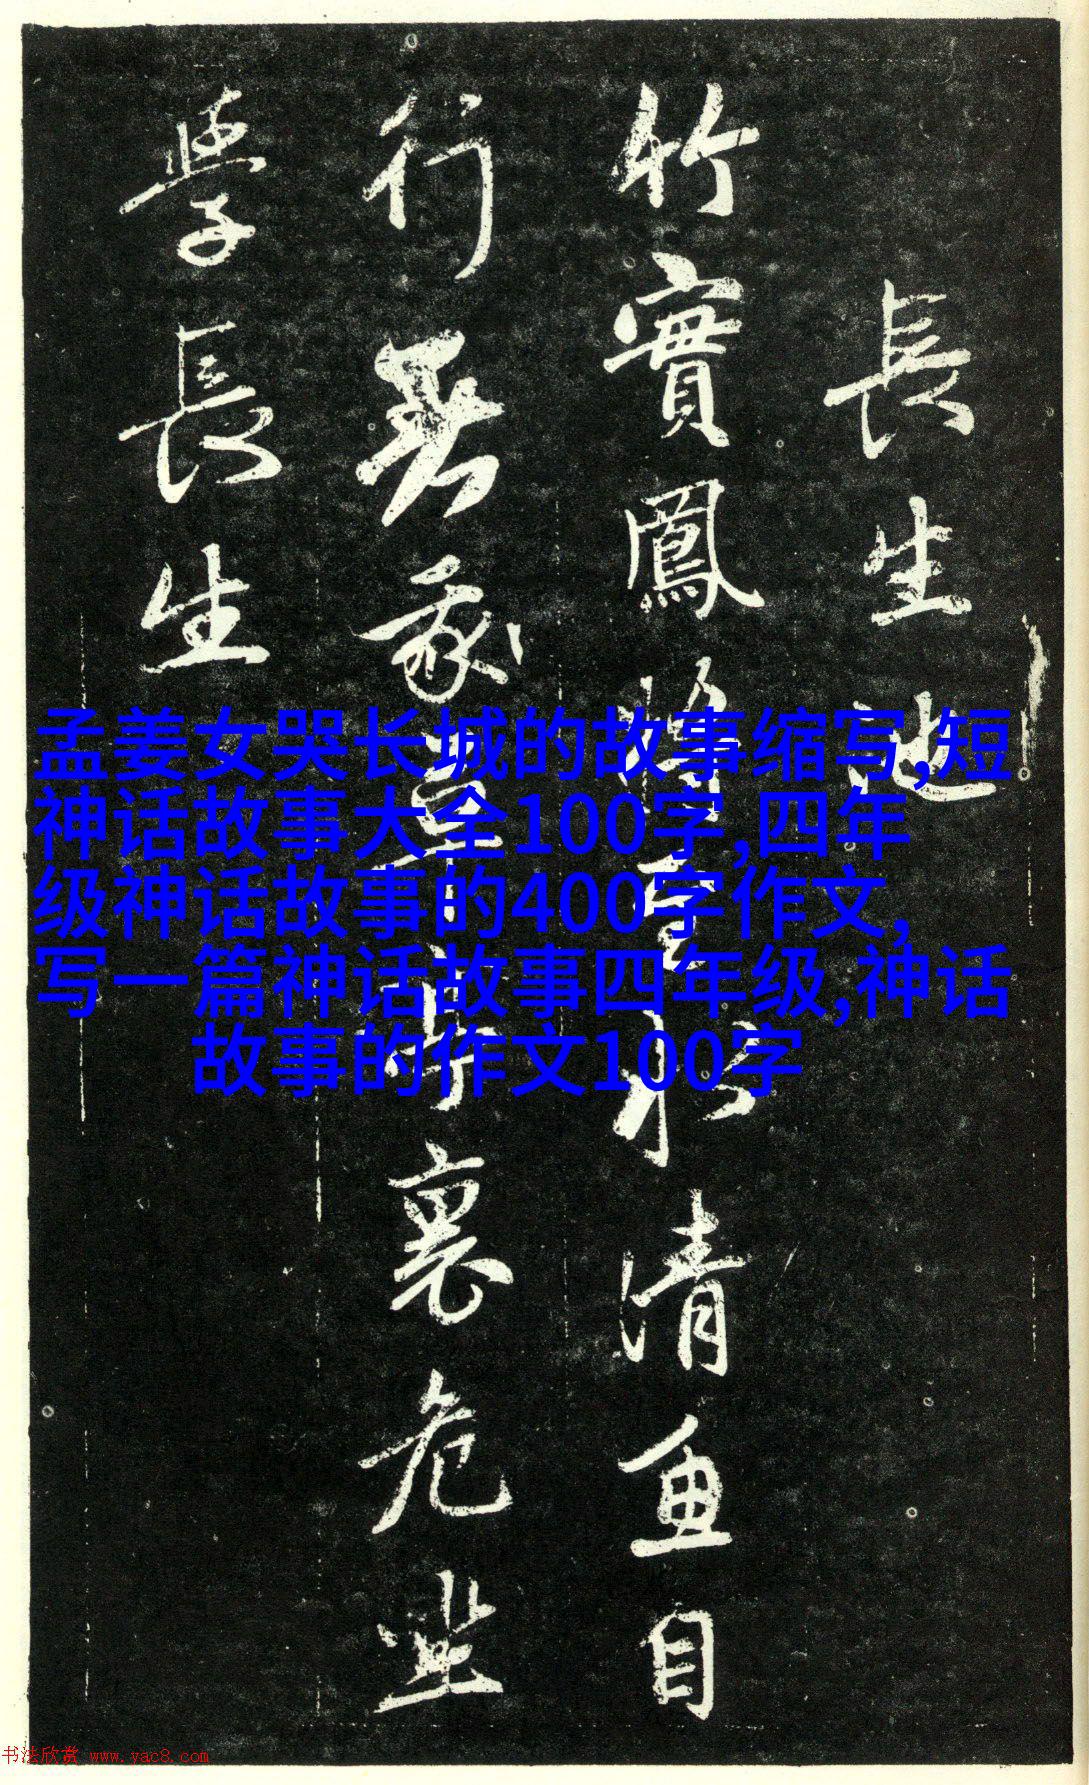 長生池
竹實鳳將水清魚自
行裏危坐
學長生
孟姜女哭长城的故事缩写,短
神话故事大全100字,四年
级神话故事的400字作文,
写一篇神话故事四年级,神话
故事的作文100字
书法欣赏 www.yac8.com